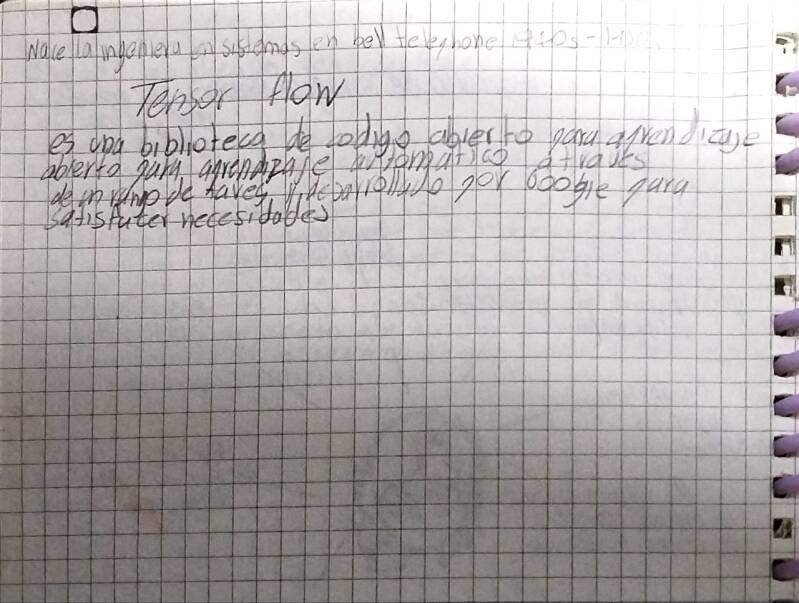 Nace la ingenieria en sistemas en bell telephone
Tensor flow
es una biblioteca de codigo abierto para aprendizaje
abierto para aprendizaje automatico a traves
de un rango de tareas y desarrollado por Google para
satisfacer necesidades